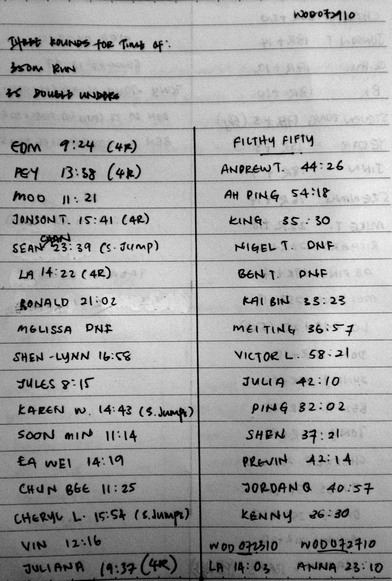 WOD 072910
THREE ROUNDS FOR TIME OF:
350M RUN
35 DOUBLE UNDERS
EDM 9:24 (4R)
PEY 13:38 (4R)
MOO 11:21
JONSON T. 15:41 (4R)
SEAN CHAN 23:39 (S.JUMP)
LA 14:22 (4R)
RONALD 21:02
MELISSA DNF
SHEN-LYNN 16:58
JULES 8:15
KAREN W. 14:43 (S.JUMPS)
SOON MIN 11:14
EA WEI 14:19
CHUN BEE 11:25
CHERYL L. 15:54 (S.JUMPS)
VIN 12:16
JULIANA 19:37 (4R)
FILTHY FIFTY
ANDREW T. 44:26
AH PING 54:18
KING 35:30
NIGEL T. DNF
BEN T. DNF
KAI BIN 33:23
MEI TING 36:57
VICTOR L. 58:21
JULIA 42:10
PING 32:02
SHEN 37:21
PREVIN 42:14
JORDAN Q 40:57
KENNY 36:30
WOD 072310 WOD 072710
LA 14:03 ANNA 23:10